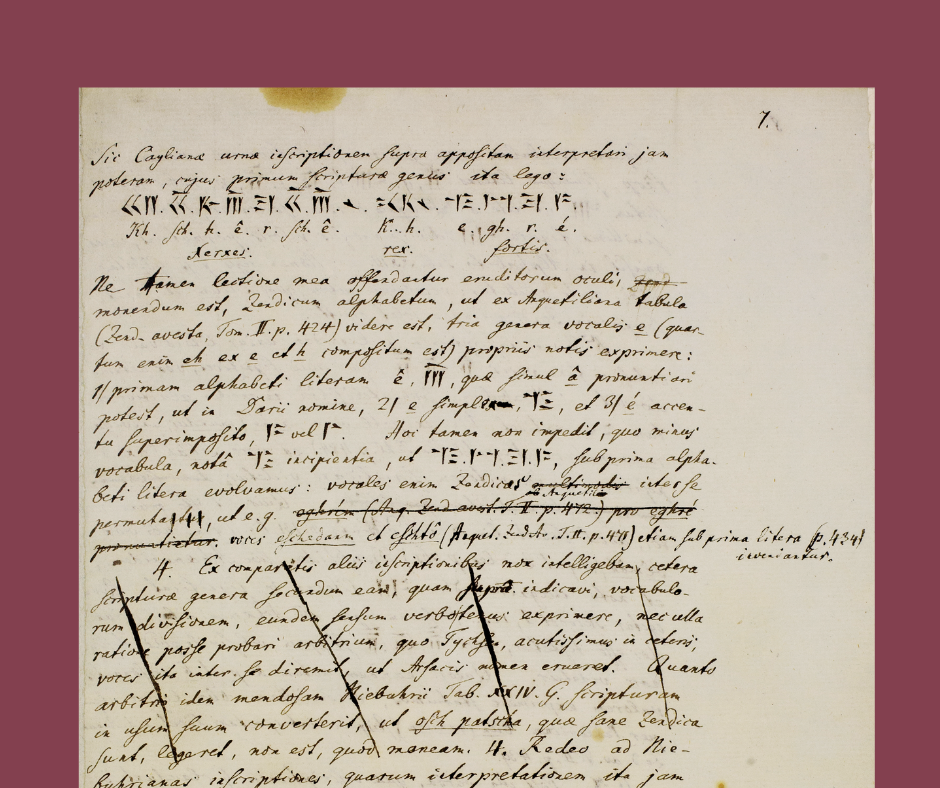 7.
Sic Caylianæ urnæ inscriptionem supra appositam interpretari jam
poteram, cujus primum scripturæ genus ita lego:
Kh. sch. h. ê. r. sch. ê. K. h. e. gh. r. é.
Xerxes. rex. fortis.
Ne tamen lectione mea offendantur eruditorum oculi,
monendum est, Zendicum alphabetum, ut ex Anquetiliana tabula
(Zend-avesta, Tom. II. p. 424) videre est, tria genera vocalis e (quan-
tum enim eh ex e et h compositum est) propriis notis exprimere:
1) primam alphabeti literam ê, 𐏁, quæ simul â pronuntiari
potest, ut in Darii nomine, 2) e simpl, et 3) é accen-
tu superimposito, vel. Hoc tamen non impedit, quo minus
vocabula, notâ incipientia, ut, sub prima alpha-
beti litera evolvamus: vocales enim Zendicas inter se
permutantur, ut e.g. eghrem (Anq. Zend-avest. T. II. p. 472) pro eghré
pronuntietur. voces eschedaum et eschtô (Anquet. Zend-Av. T. II. p. 471) etiam sub prima litera (p. 434)
inveniantur.
4. Ex comparatis aliis inscriptionibus nox intelligebam, cetera
scripturæ genera secundum eam, quam supra indicavi, vocabulo-
rum divisionem, eundem sensum verbotenus exprimere, nec ulla
ratione posse probari arbitrium, quo Tychse, acutissimus in ceteris,
voces ita inter se diremit, ut Arsacis nomen erueret. Quanto
arbitrio idem mendosam Niebuhrii Tab. XXIV. G. scripturam
in usum suum converterit, ut osch patscha, quæ sane Zendica
sunt, legeret, non est, quod moneam. 4. Redeo ad Nie-
buhrianas inscriptiones, quarum interpretationem ita jam